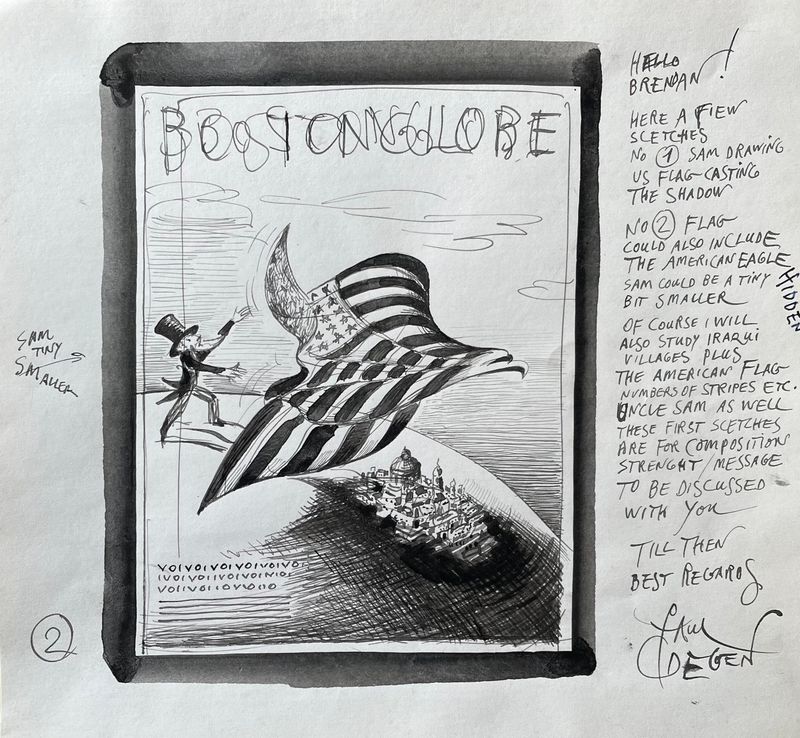 BOSTON GLOBE
SAM
TINY
SMALLER
VOIVOIVOIVOIVOIVO
IVOIVOIIVOIVOIVOIVOI
VOIIVOIIOIVOIOO
2
HELLO
BRENDAN!
HERE A FIEW
SCETCHES
NO 1 SAM DRAWING
US FLAG CASTING
THE SHADOW
NO 2 FLAG
COULD ALSO INCLUDE
THE AMERICAN EAGLE
HIDDEN
SAM COULD BE A TINY
BIT SMALLER
OF COURSE I WILL
ALSO STUDY IRAQUI
VILLAGES PLUS
THE AMERICAN FLAG
NUMBERS OF STRIPES ETC.
UNCLE SAM AS WELL
THESE FIRST SCETCHES
ARE FOR COMPOSITION
STRENGHT/MESSAGE
TO BE DISCUSSED
WITH YOU
TILL THEN
BEST REGARDS,
PAUL
DEGEN